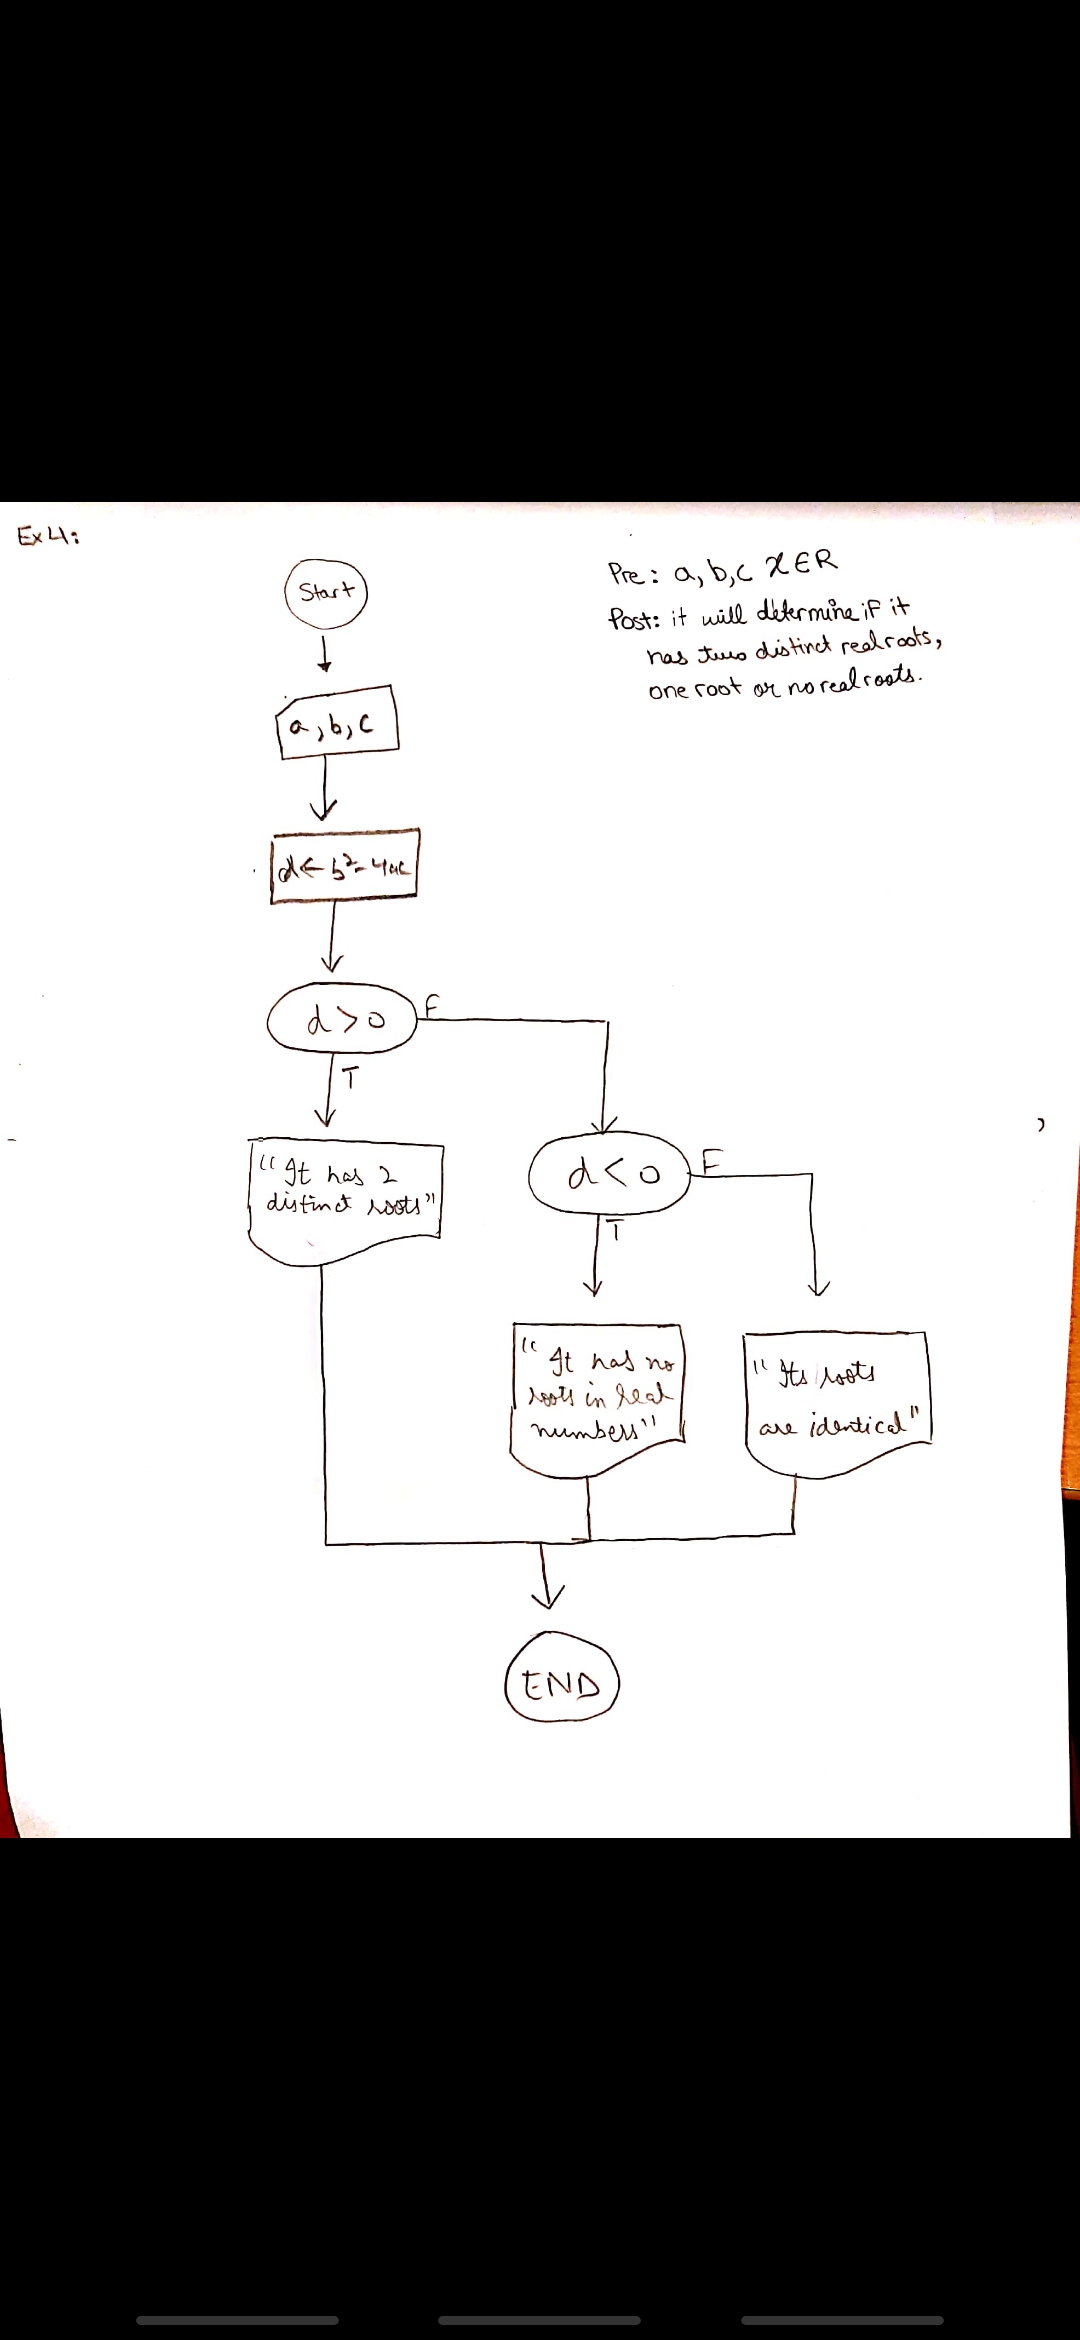 Ex 4:
Start
Pre: a, b, c x∈R
Post: it will determine if it
has two distinct real roots,
one root or no real roots.
a, b, c
d ← b²-4ac
d > 0
F
T
"It has 2
distinct roots"
d < 0
F
T
"It has no
roots in real
numbers"
"Its roots
are identical"
END